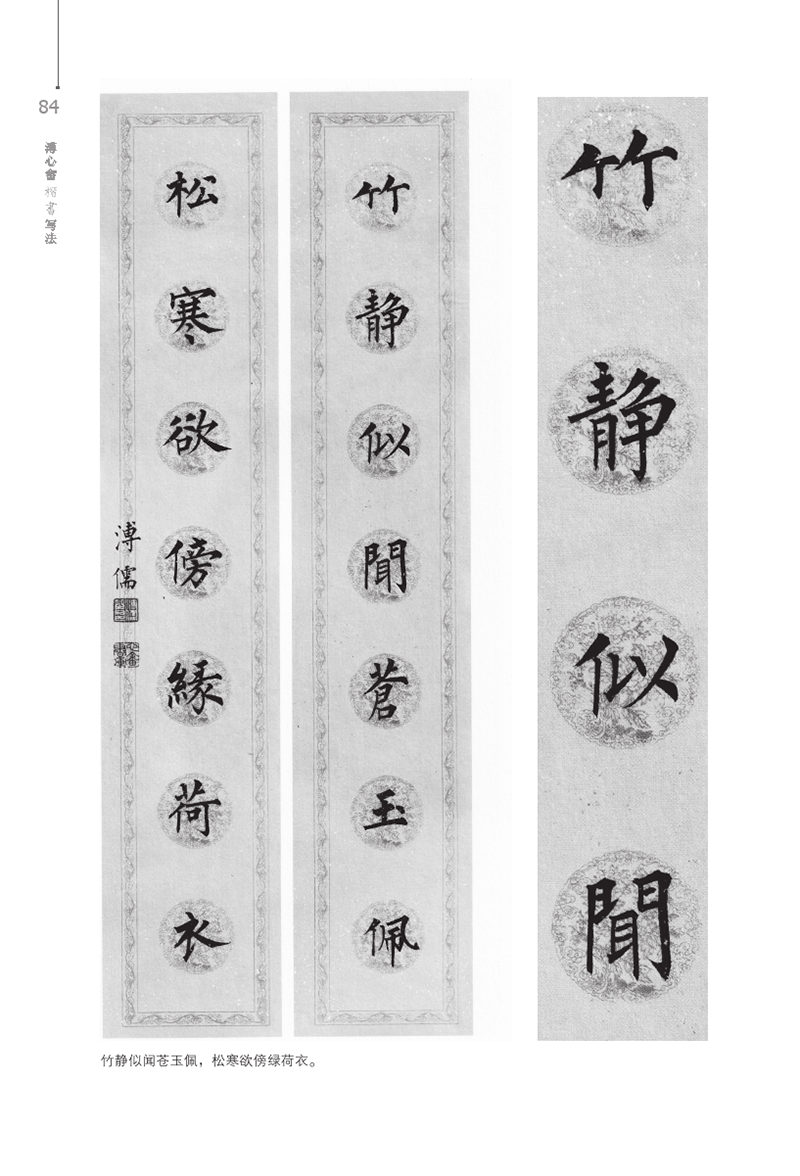 84
溥心畬楷書写法
竹靜似聞蒼玉佩
松寒欲傍緑荷衣
溥儒
竹靜似聞
竹静似闻苍玉佩，松寒欲傍绿荷衣。